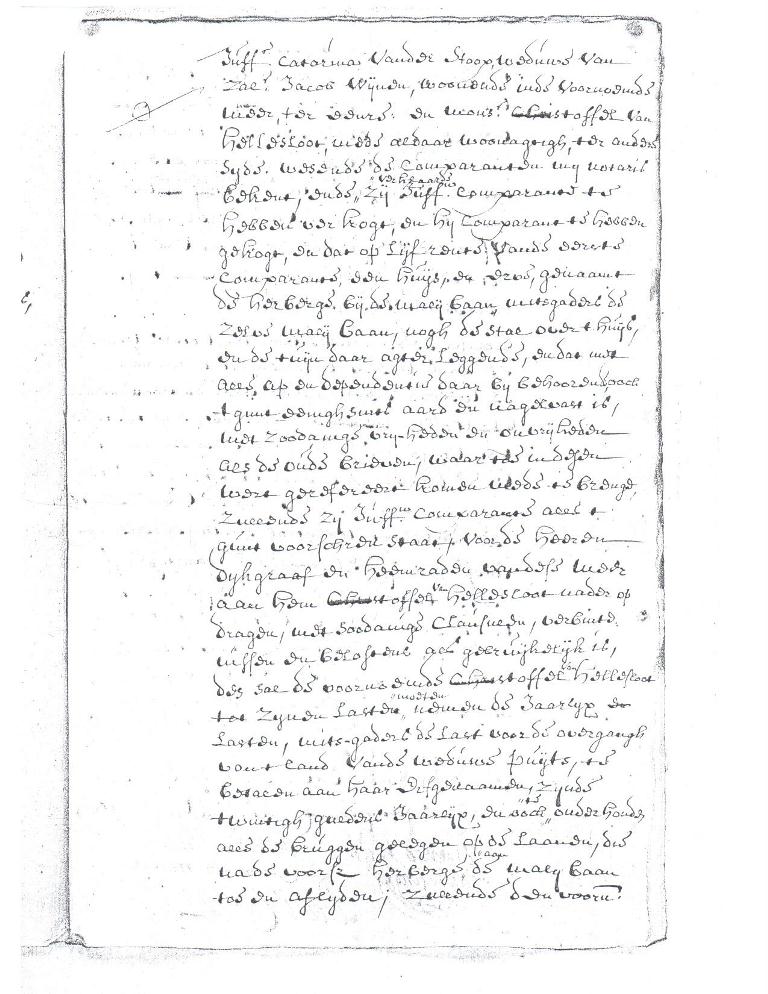 Juffr. Catarina Vander Stoop, weduwe van
Zal. Jacob Wijnen, woonende inde voornoemde
meer, ter eenre: en Mons.r Christoffel van
Hellesloot, mede aldaar woonagtigh, ter andere
syde. wesende de Comparanten my notaris
bekent, ende verklaarde zij Juff.w Comparante te
hebben verkogt, en hij Comparant te hebben
gekogt, en dat op Lijfrente, vande eerste
Comparante, een huijs, en erve, genaamt
de herberge bij de maly baan, mitsgaders de
zelve maly baan, nogh de stal over 't huijs,
en de tuijn daar agter leggende, en dat met
alles ap en dependentie daar bij behoorende, ook
't gunt eenighsints aard en nagelvast is,
met zoodanige vrij-heden en onvrijheden
als de oude brieven, waar toe in desen
wert gerefereert komen mede te brenge,
zullende zij Juff.w Comparante alles 't
gunt voorschreven staat, voor de heeren
Dykgraaf en heemraden van dese meer
aan hem Christoffel van Hellesloot nader op
dragen, met soodanige Clausulen, verbinte
nissen en beloftens als gebruijkelijk is,
des sal de voornoemde Christoffel van Hellesloot
tot zynen Laste moeten nemen de Jaarlyx
Lasten, mits-gaders de Last voor de overgangh
van 't land vande weduwe Puijts, te
betalen aan haar Erfgenaamen, zynde
twintigh guldens Jaarlyx, en ook te onderhouden
alle de bruggen gelegen op de Laanen, die
na de voorsz herberge aan de maly baan
toe en aflyden; zullende den voorn: